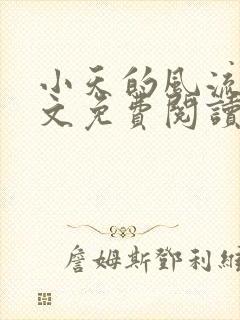 小天的風流
文免費閱讀
詹姆斯鄧利維